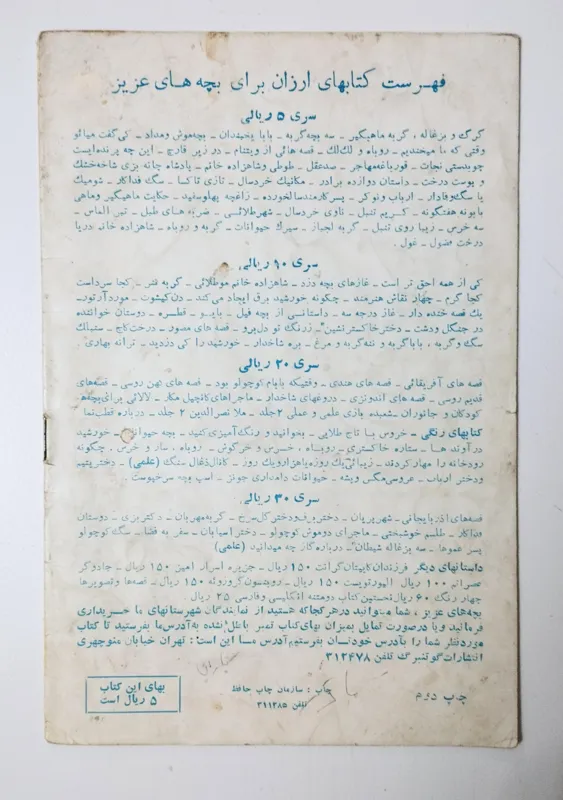 فهرست کتابهای ارزان برای بچه های عزیز
سری ۵ ریالی
گرگ و بزغاله ، گربه ماهیگیر ـ سه بچه گربه ـ بابا یخبندان ـ بچه موش و مداد ـ کی گفت میائو
وقتی که ما میخندیم ـ روباه و لک لک ـ قصه هائی از ویتنام ـ در زیر قارچ ـ این چه پرنده ایست
چوبدستی نجات ـ قورباغه مهاجر ـ صد عقل ـ طوطی و شاهزاده خانم ـ پادشاه چانه بزی شاخه خشک
و پوست درخت ـ داستان دوازده برادر ـ مکانیک خردسال ـ تازی تاکسا ـ سگ فداکار ـ شومیک
یا سگ وفادار ـ ارباب و نوکر ـ پسر کارمند سالخورده ـ زاغچه پهلو سفید ـ حکایت ماهیگیر و ماهی
بابونه هفتگونه ـ کریم تنبل ـ ناوی خردسال ـ شهر طلائی ـ ضربه های طبل ـ تبر الماس ـ
سه خرس ـ زیبا روی تنبل ـ گربه لجباز ـ سیرک حیوانات ـ گربه و روباه ـ شاهزاده خانم دریا
درخت فضول ـ غول ـ
سری ۱۰ ریالی
کی از همه احمق تر است ـ غازهای بچه دزد ـ شاهزاده خانم موطلائی ـ گربه فنر ـ کجا سرداست
کجا گرم ـ چهار نقاش هنرمند ـ چگونه خورشید برق ایجاد می کند ـ دن کیشوت ـ
یک قصه خنده دار ـ غاز درجه سه ـ داستانی از بچه فیل ـ بابو ـ قطره ـ دوستان خواننده
در جنگل و دشت ـ دختر خاکستر نشین ـ زرنگ تو دل برو ـ قصه های مصور ـ درخت کاج ـ
سگ و گربه ، باباگربه و ننه گربه و مرغ ـ بره شاخدار ـ خورشید را کی دزدید ـ ترانه بهاری ـ
سری ۲۰ ریالی
قصه های آفریقائی ـ قصه های هندی ـ وقتیکه بابام کوچولو بود ـ قصه های کهن روسی ـ قصه های
قدیم روسی ـ قصه های اندونزی ـ دروغهای شاخدار ـ ماجراهای گانچیل مکار ـ لالائی برای بچه ها
کودکان و جانوران ـ شعبده بازی علمی و عملی ۲ جلد ـ ملا نصرالدین ۲ جلد ـ درباره قطب نما
کتابهای رنگی ـ خروس با تاج طلایی ـ بخوانید و رنگ آمیزی کنید ـ بچه حیوانات ـ خورشید
در آوند ها ـ ستاره خاکستری ـ روباه ، خرس و خرگوش ـ روباه ، سار و خرس ـ چگونه
رودخانه را مهار کردند ـ زیبائی یک روزه یا هزار و یک روز ـ کانال ذغال سنگ (علمی) ـ دختر یتیم
و دختر ارباب ـ عروسی مگس و پشه ـ حیوانات دامداری جونز ـ اسب بچه سرخپوست ـ
سری ۳۰ ریالی
قصه های آذربایجانی ـ شهر پریان ـ دختر برف و دختر گل سرخ ـ گربه مهربان ـ دکتر بزی ـ دوستان
فداکار ـ طلسم خوشبختی ـ ماجرای دو موش کوچولو ـ دختر آسیابان ـ سفر به فضا ـ سگ کوچولو
پسر عموها ـ سه بزغاله شیطان ـ درباره گاز چه میدانید (علمی)
داستانهای دیگر فرزندان کاپیتان گرانت ۱۵۰ ریال ـ جزیره اسرار آمیز ۱۵۰ ریال ـ جادوگر
عصر اتم ۱۰۰ ریال الیور تویست ۱۵۰ ریال ـ روبنسون کروزوئه ۱۵۰ ریال ـ قصه ها و تصویرها
چهار رنگ ۶۰ ریال نخستین کتاب دو صفحه انگلیسی و فارسی ۲۵ ریال ـ
بچه های عزیز ، شما میتوانید در هر کجا که هستید از نمایندگان شهرستانهای ما خریداری
فرمائید و یا در صورت تمایل بمیزان بهای کتاب تمبر باطل نشده به آدرس ما بفرستید تا کتاب
مورد نظر شما را بآدرس خودتان بفرستیم آدرس ما این است : تهران خیابان منوچهری
انتشارات گوتنبرگ تلفن ۳۱۲۴۷۸
بهای این کتاب
۵ ریال است
چاپ : سازمان چاپ حافظ
تلفن ۳۱۱۳۸۵
چاپ دوم